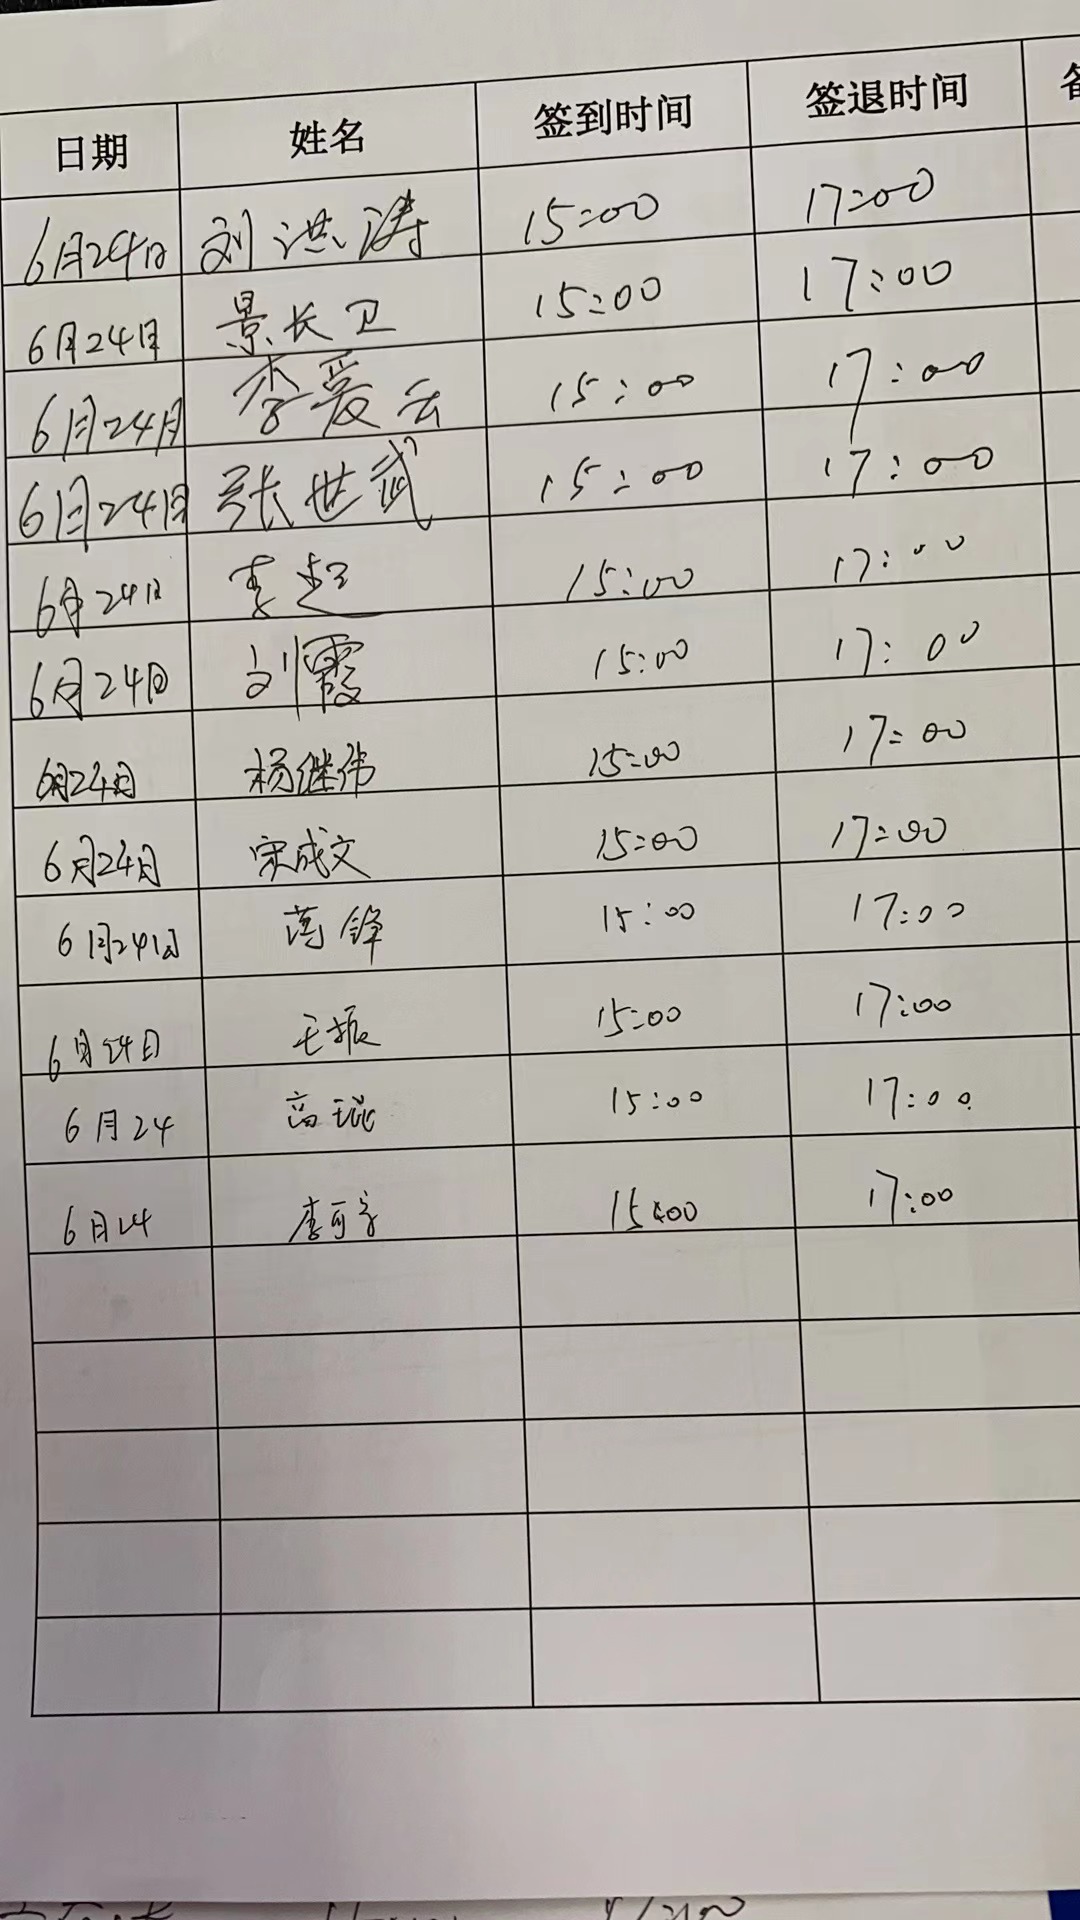 日期 姓名 签到时间 签退时间
6月24日 刘洪涛 15:00 17:00
6月24日 景长卫 15:00 17:00
6月24日 李爱云 15:00 17:00
6月24日 张世武 15:00 17:00
6月24日 李超 15:00 17:00
6月24日 刘霞 15:00 17:00
6月24日 杨继伟 15:00 17:00
6月24日 宋成文 15:00 17:00
6月24日 蒋锋 15:00 17:00
6月24日 王振 15:00 17:00
6月24 高琨 15:00 17:00
6月24 李可 15:00 17:00